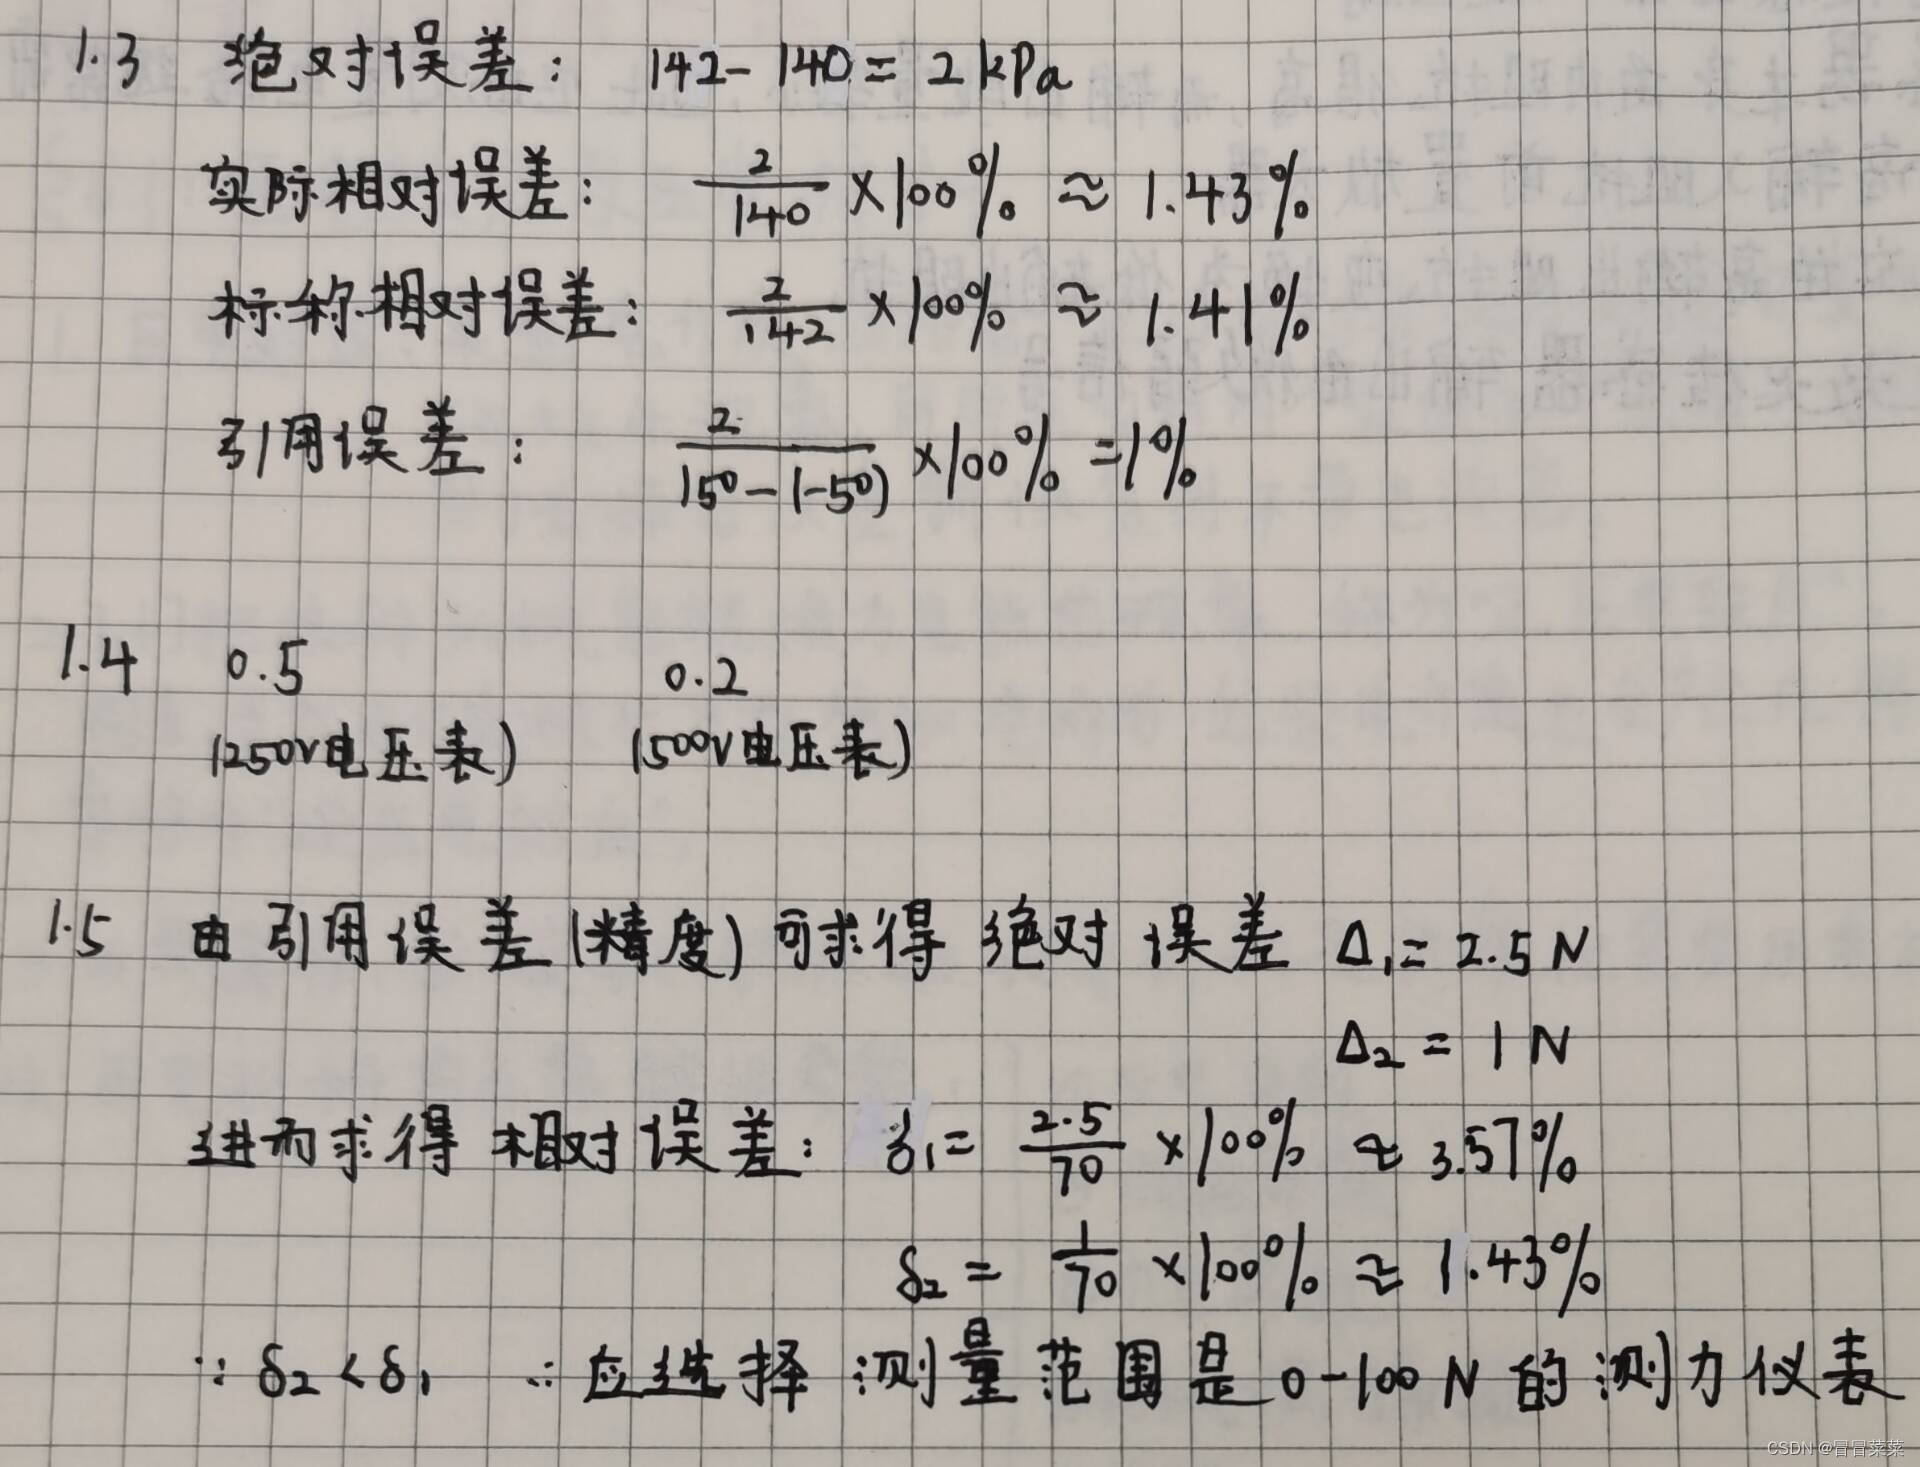 1.3 绝对误差: 142-140=2kPa
实际相对误差: 2/140 ×100% ≈ 1.43%
标称相对误差: 2/142 ×100% ≈ 1.41%
引用误差: 2/150-(-50) ×100% =1%
1.4 0.5 0.2
(250V电压表) (500V电压表)
1.5 由引用误差(精度)可求得绝对误差 Δ₁=2.5N
Δ₂=1N
进而求得相对误差: δ₁= 2.5/70 ×100% ≈ 3.57%
δ₂= 1/70 ×100% ≈ 1.43%
∵ δ₂<δ₁ ∴ 应选择测量范围是0-100N的测力仪表
CSDN @冒冒菜菜